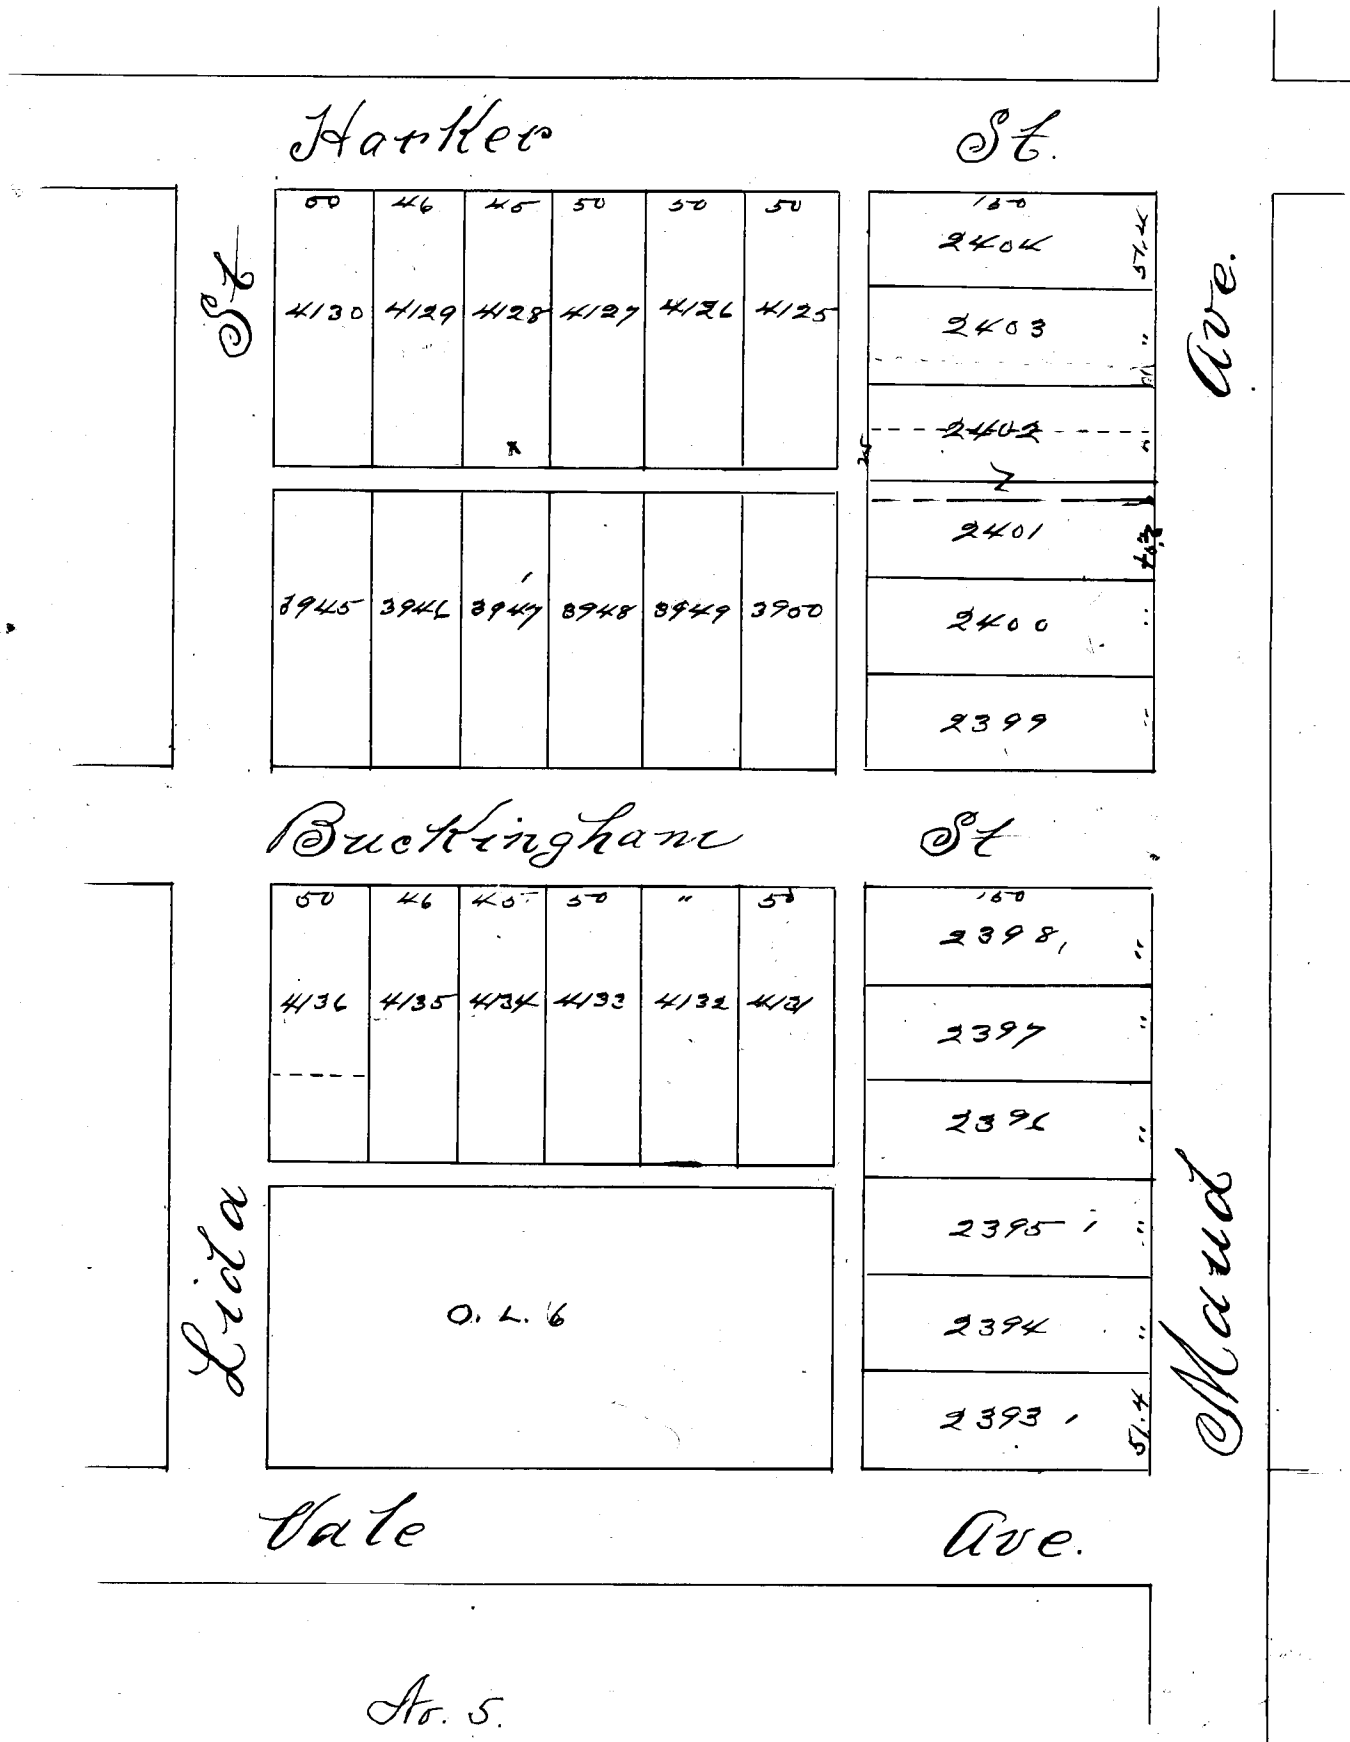 Harker St.
50 46 45 50 50 50 150
4130 4129 4128 4127 4126 4125
St
2404 51.4
2403 "
2402 "
25
2401
2400 "
2399 "
Ave.
3945 3946 3947 3948 3949 3950
Buckingham St
50 46 45 50 " 50 150
4136 4135 4134 4133 4132 4131
2398 "
2397 "
2396 "
2395 "
2394 "
2393 51.4
Lida
O. L. 6
Maud
Vale Ave.
No. 5.